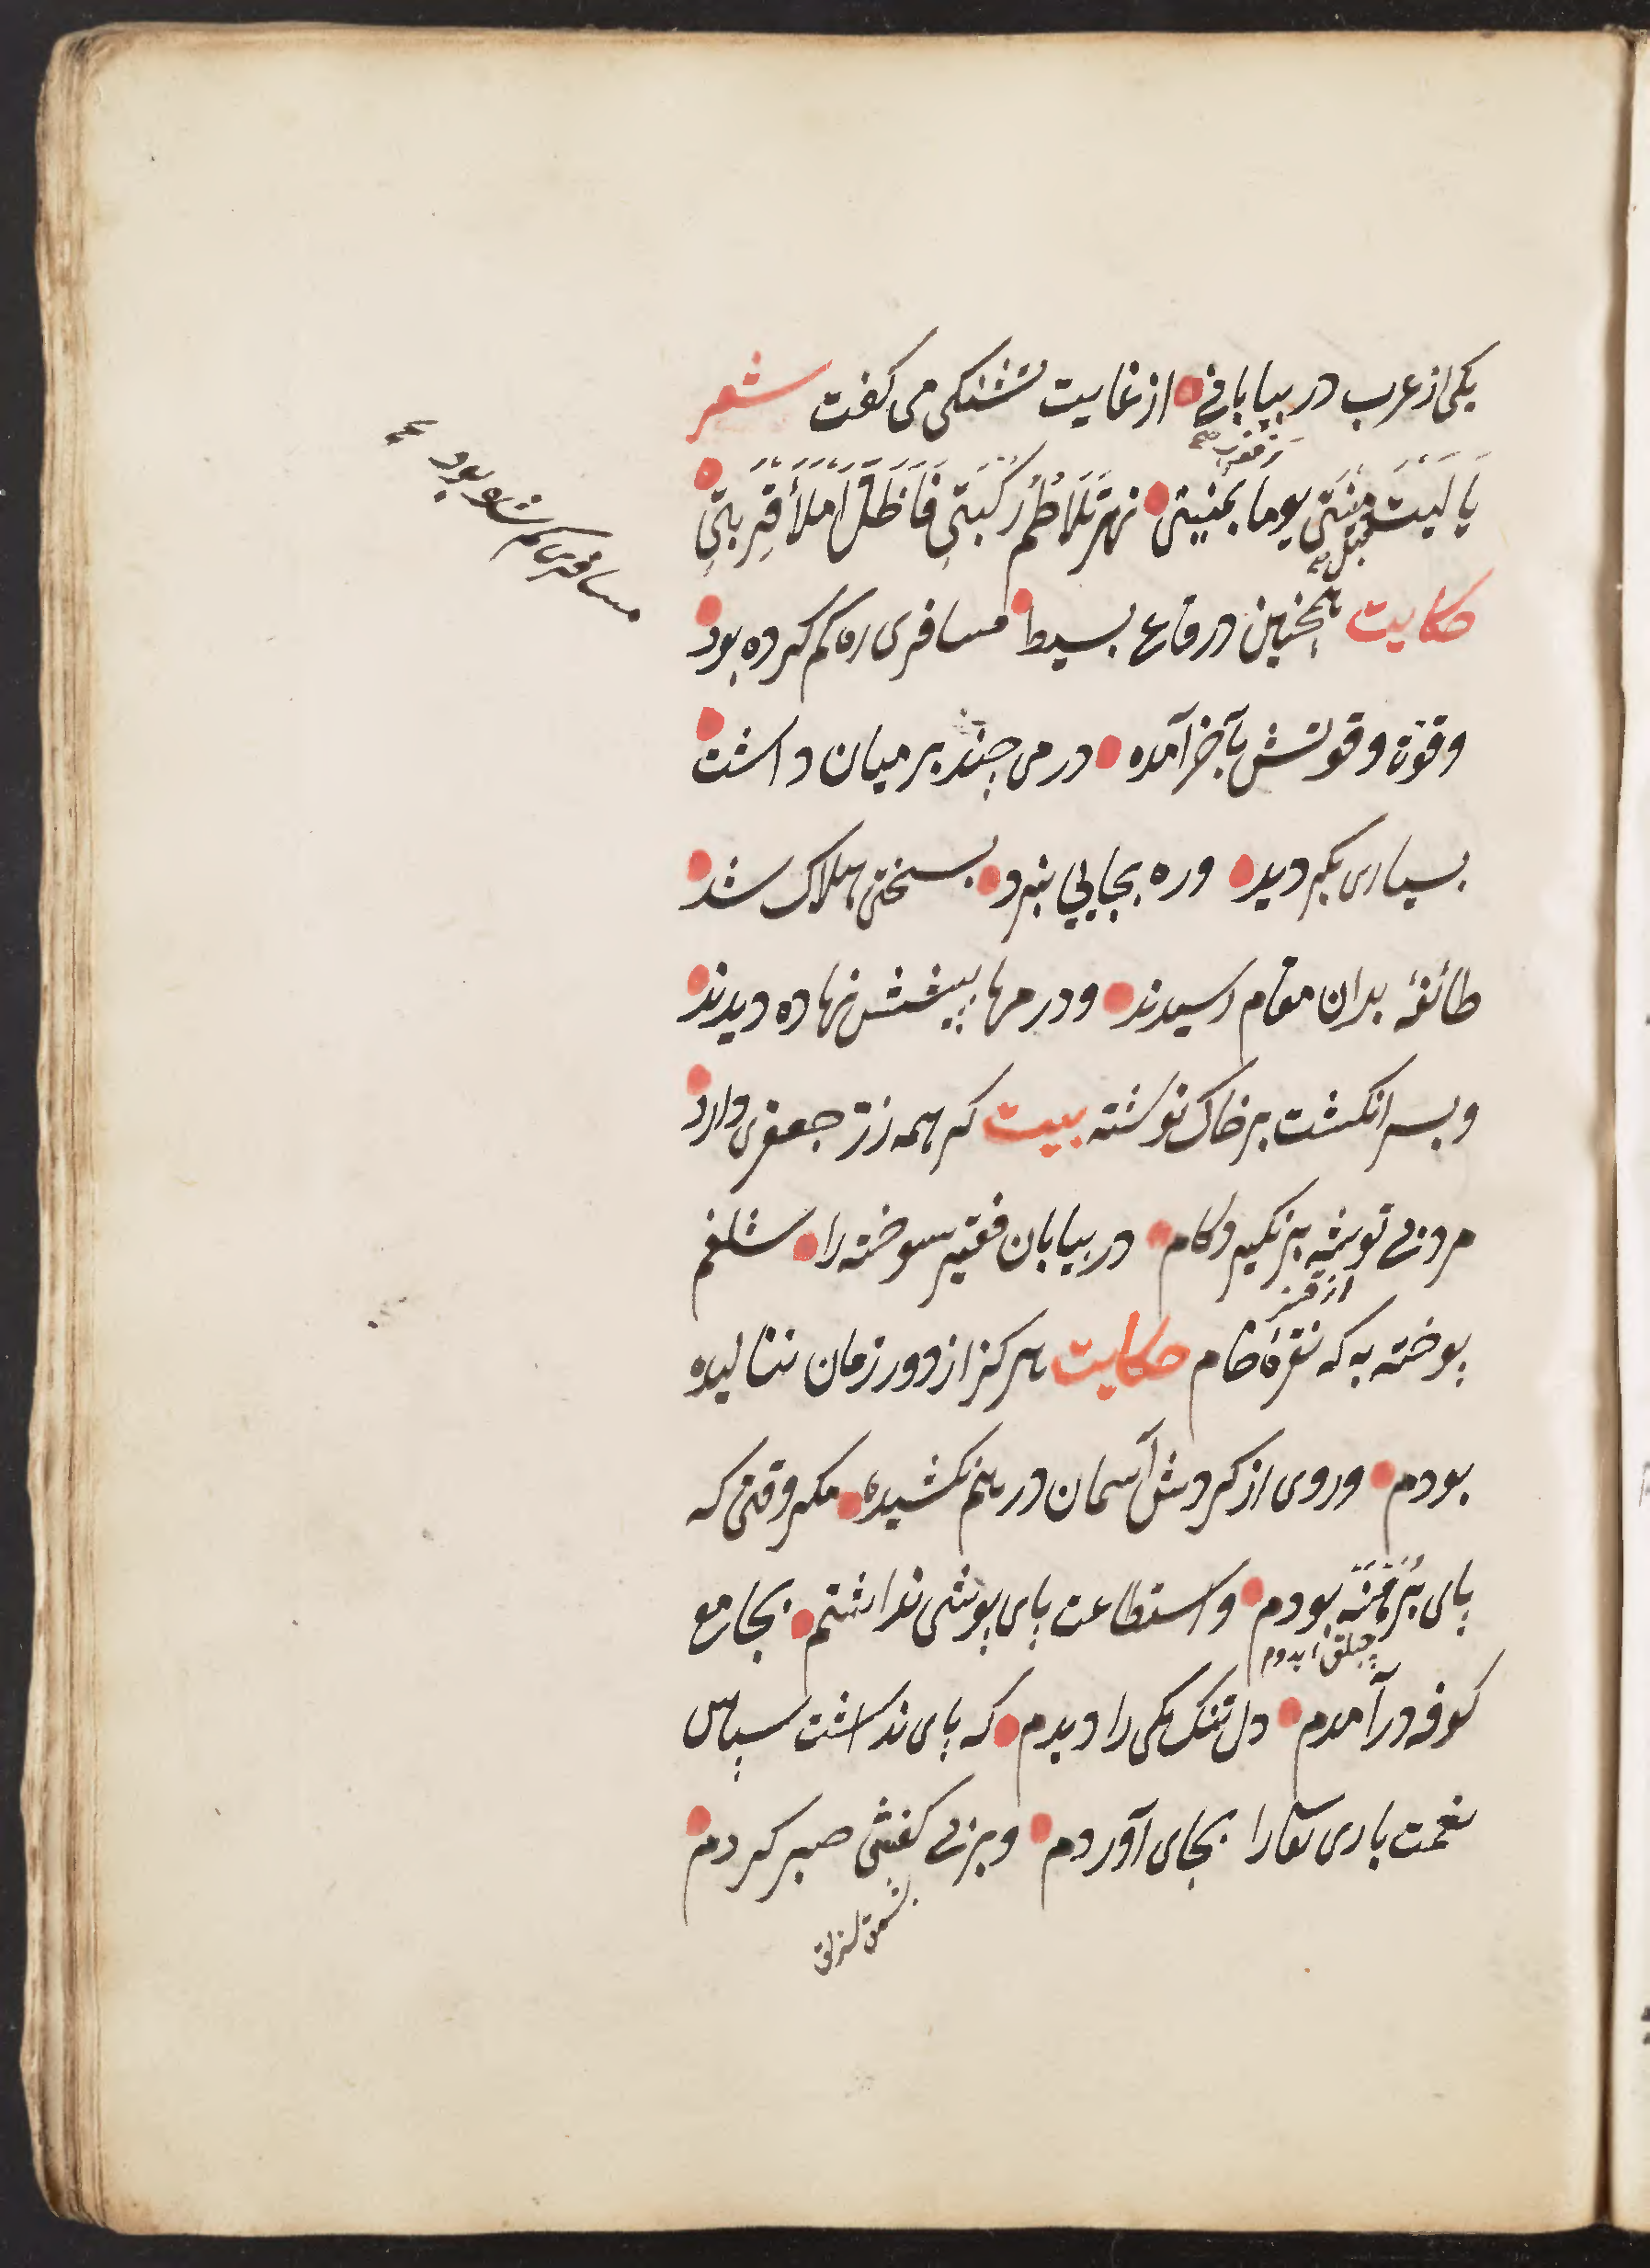 یکی از عرب در بیابانی از غایت تشنکی می کفت شعر
یَا لَیتَ قبل مَنِیَّتی یوما بمنیتی نهر تَلَاطُم رُکبَتِی فَاَظَلَّ اَملَأ قِربَتِی
حکایت همچنین در قاع بسیط مسافری ره کم کرده بود
وقوة وقوتش بآخر آمده درمی چند بر میان داشت
بسیاری بکردید وره بجایی نبرد بسختی هلاک شد
طائفهٔ بدان مقام رسیدند ودرمها پیشش نهاده دیدند
وبسر انکشت بر خاک نوشته بیت کر همه زرّ جعفری دارد
مرد بی توشه بر نکیرد کام در بیابان فقیر سوخته را شلغم
پوخته به که نقرهٔ خام حکایت هرکز از دور زمان ننالیده
بودم وروی از کردش آسمان درهم نکشیده مکر وقتی که
پای بُرهنَه بودم واستطاعت پای پوشی نداشتم بجامع
کوفه درآمدم دل تنک یکی را دیدم که پای نداشت سپاس
نعمت باری تعا را بجای آوردم وبر بی کفشی صبر کردم
مسافری کم شده بود